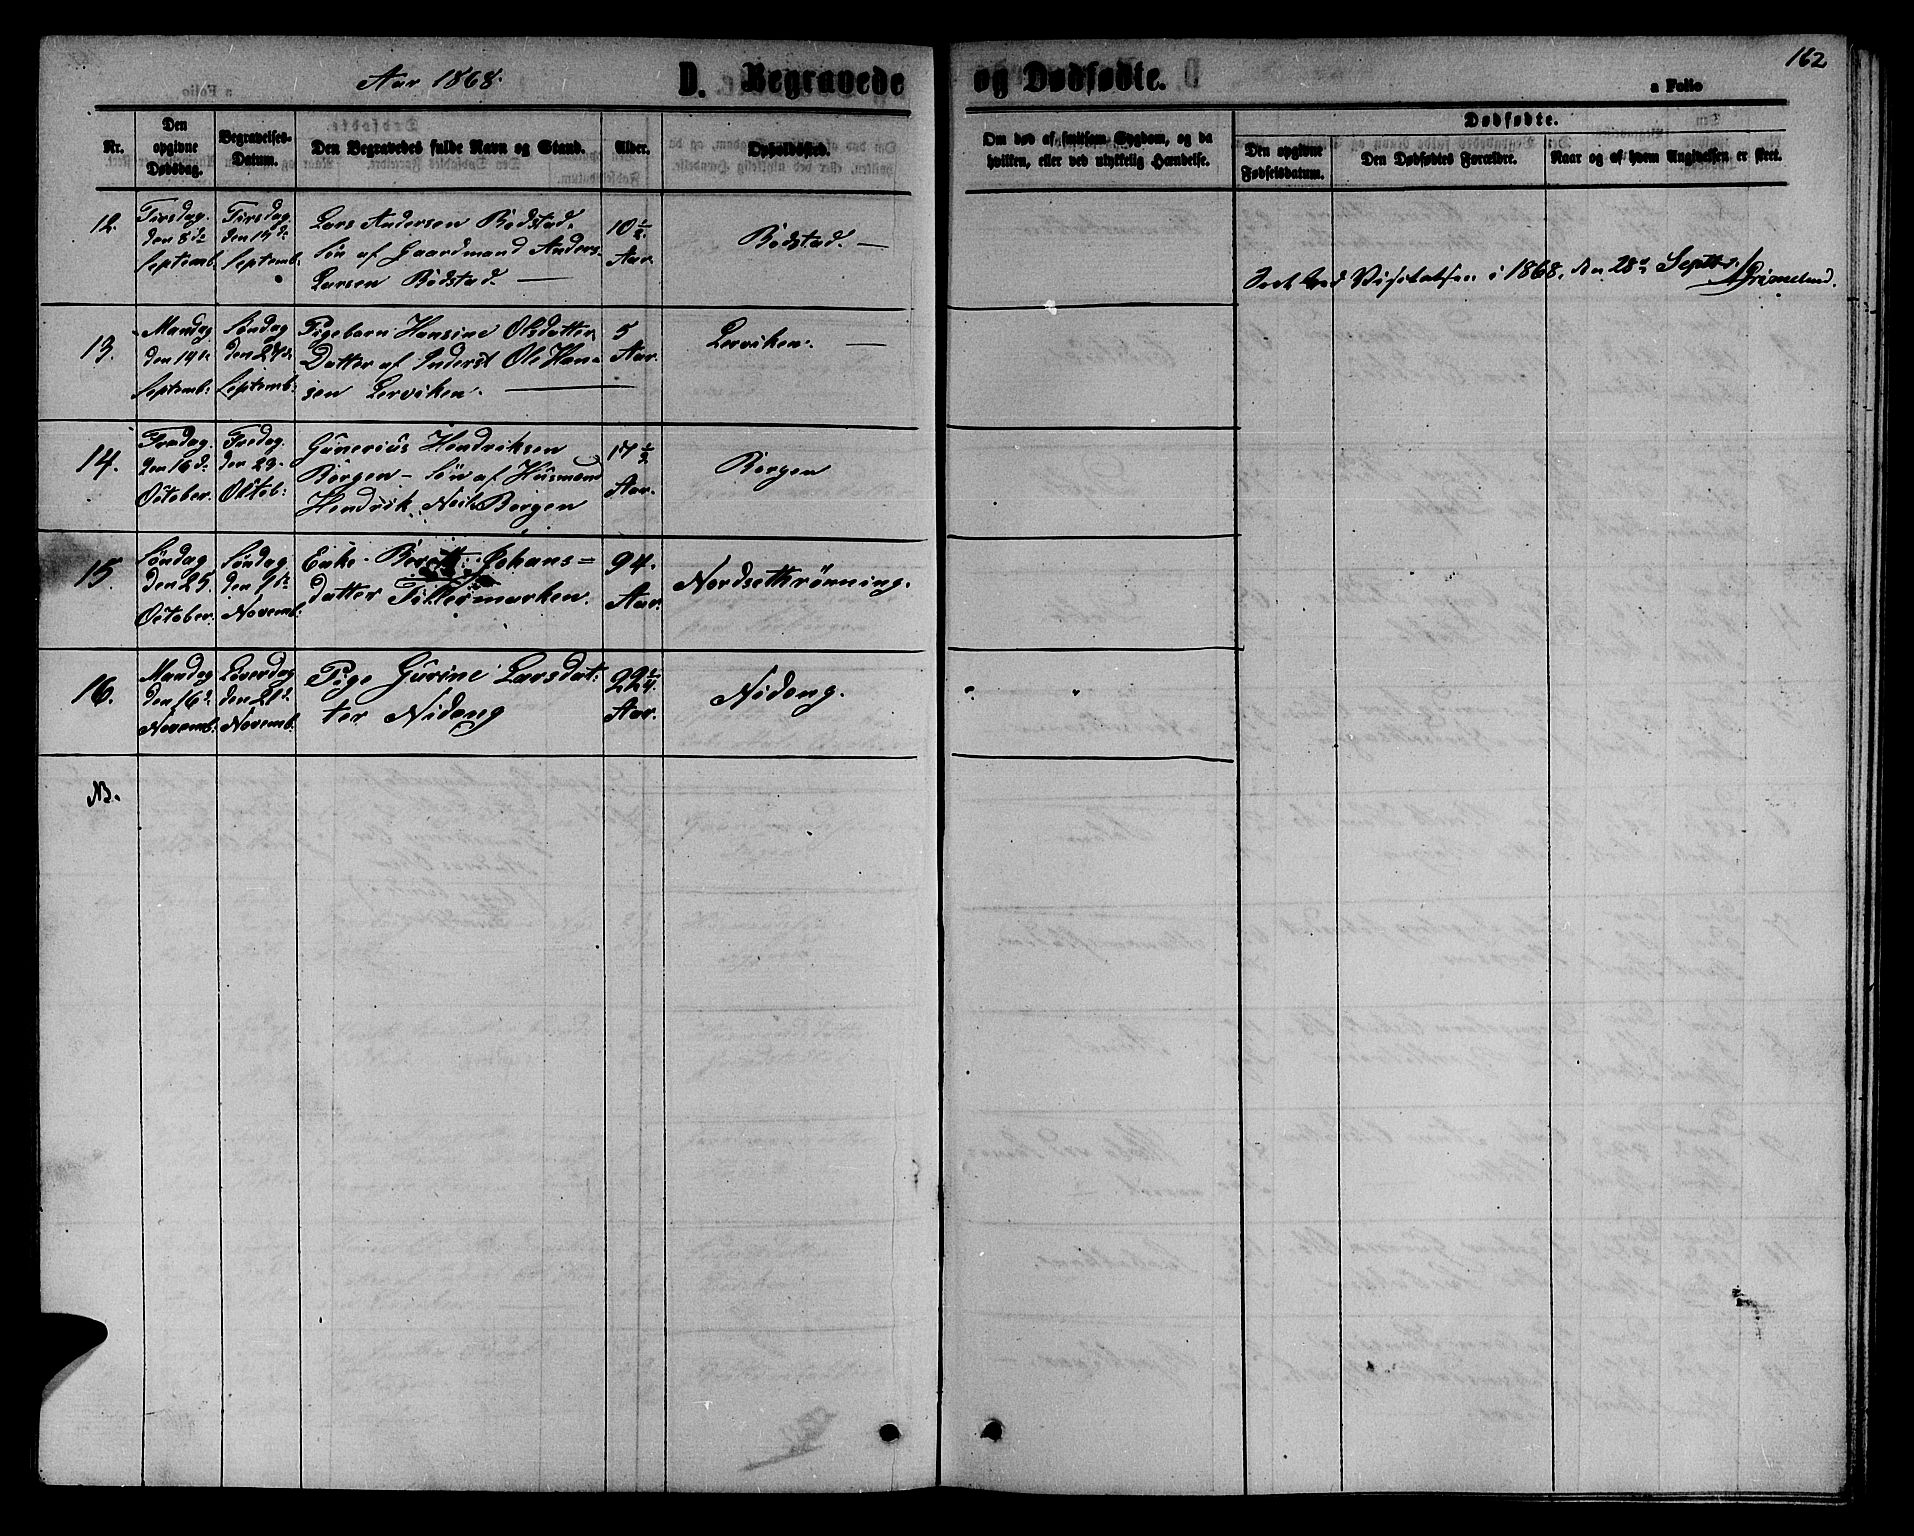 Aar 1868.
D. Begravede og Dødfødte.
162
a Folio
Nr.
Den opgivne Dødsdag.
Begravelses-Datum.
Den Begravedes fulde Navn og Stand.
Alder.
Opholdssted.
Om død af smitsom Sygdom, og da hvilken, eller ved ulykkelig Hændelse.
Dødfødte.
Den opgivne Fødselsdatum.
Den Dødfødtes Forældre.
Naar og af hvem Angivelsen er skeet.
12.
Tirsdag
den 8de
Septemb.
Tirsdag
den 15de
Septemb.
Lars Andersen Bodstad.
Søn af Gaardmand Anders
Larsen Bodstad —
10½
Aar.
Bodstad. —
Seet ved Visitatsen i 1868, den 28de Septbr.
Grimelund.
13.
Mandag
den 14de
Septemb:
Søndag
den 27de
Septemb:
Pigebarn Hansine Olsdatter
Datter af Inderst Ole Han-
sen Lerviken. —
5
Aar.
Lerviken. —
14.
Fredag
den 16de
October.
Fredag
den 23.
Octob:
Gunerius Hendriksen
Borgen – Søn af Husmand
Hendrik Borgen
17½
Aar.
Borgen
15.
Søndag
den 25.
October.
Søndag
den 1ste
Novemb.
Enke Johans=
datter Tillermarken.
94.
Aar.
Nordsethrønning.
16.
Mandag
den 16de
Novemb:
Løverdag
den 21de
Novemb.
Pige Gurine Larsdat
ter Nideng
22¼
Aar.
Nideng.
NB.